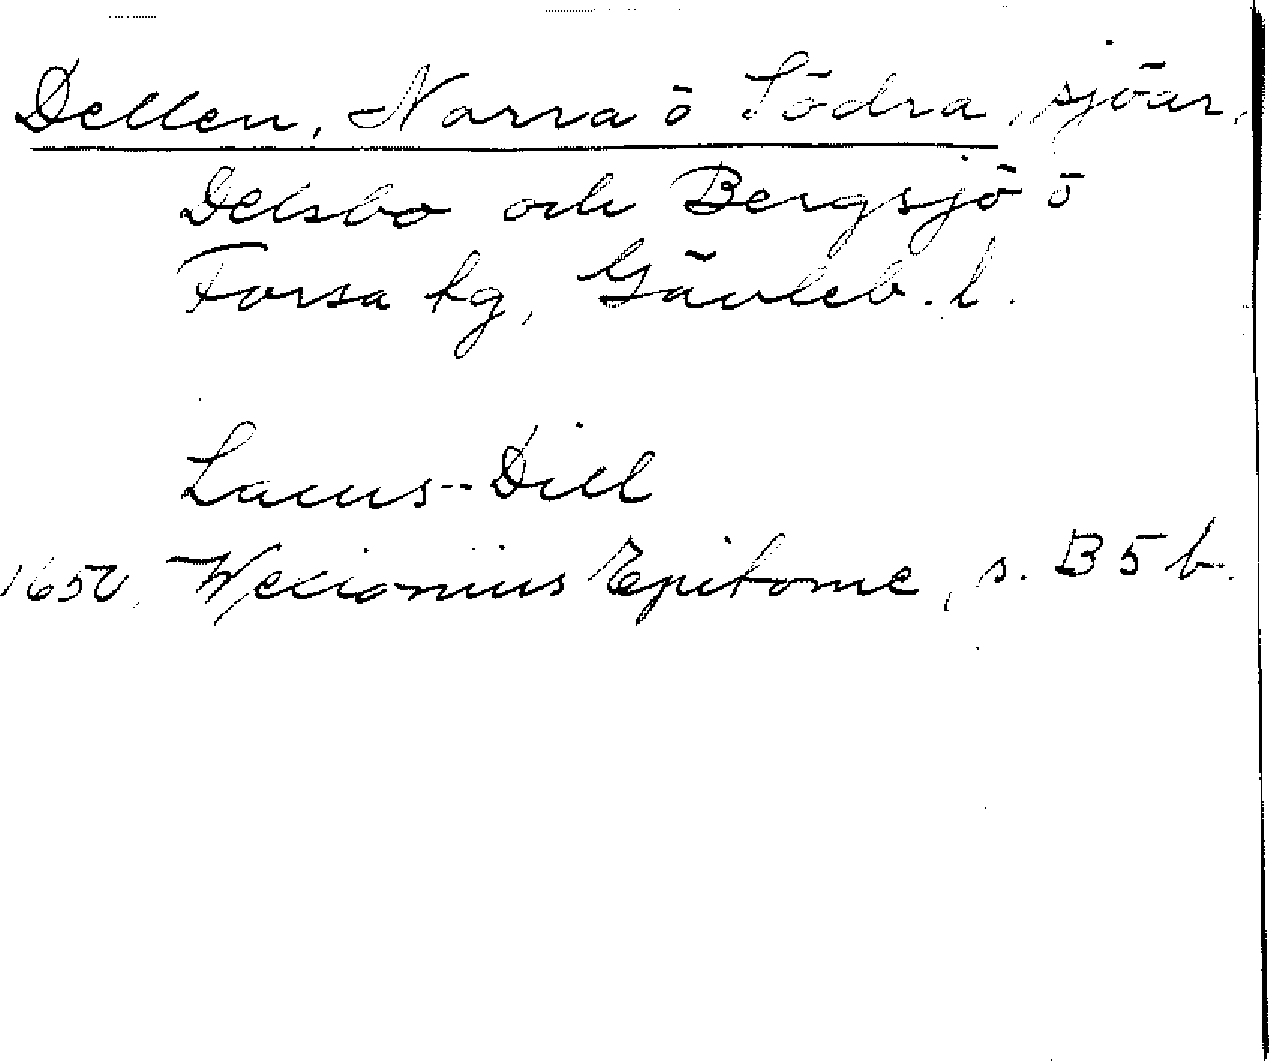 Dellen, Norra o Södra, sjöar,
Delsbo och Bergsjö o
Forsa tg, Gävleb. l.
Lacus Dill
1650. Wexionius Epitome, s. B 5 b.